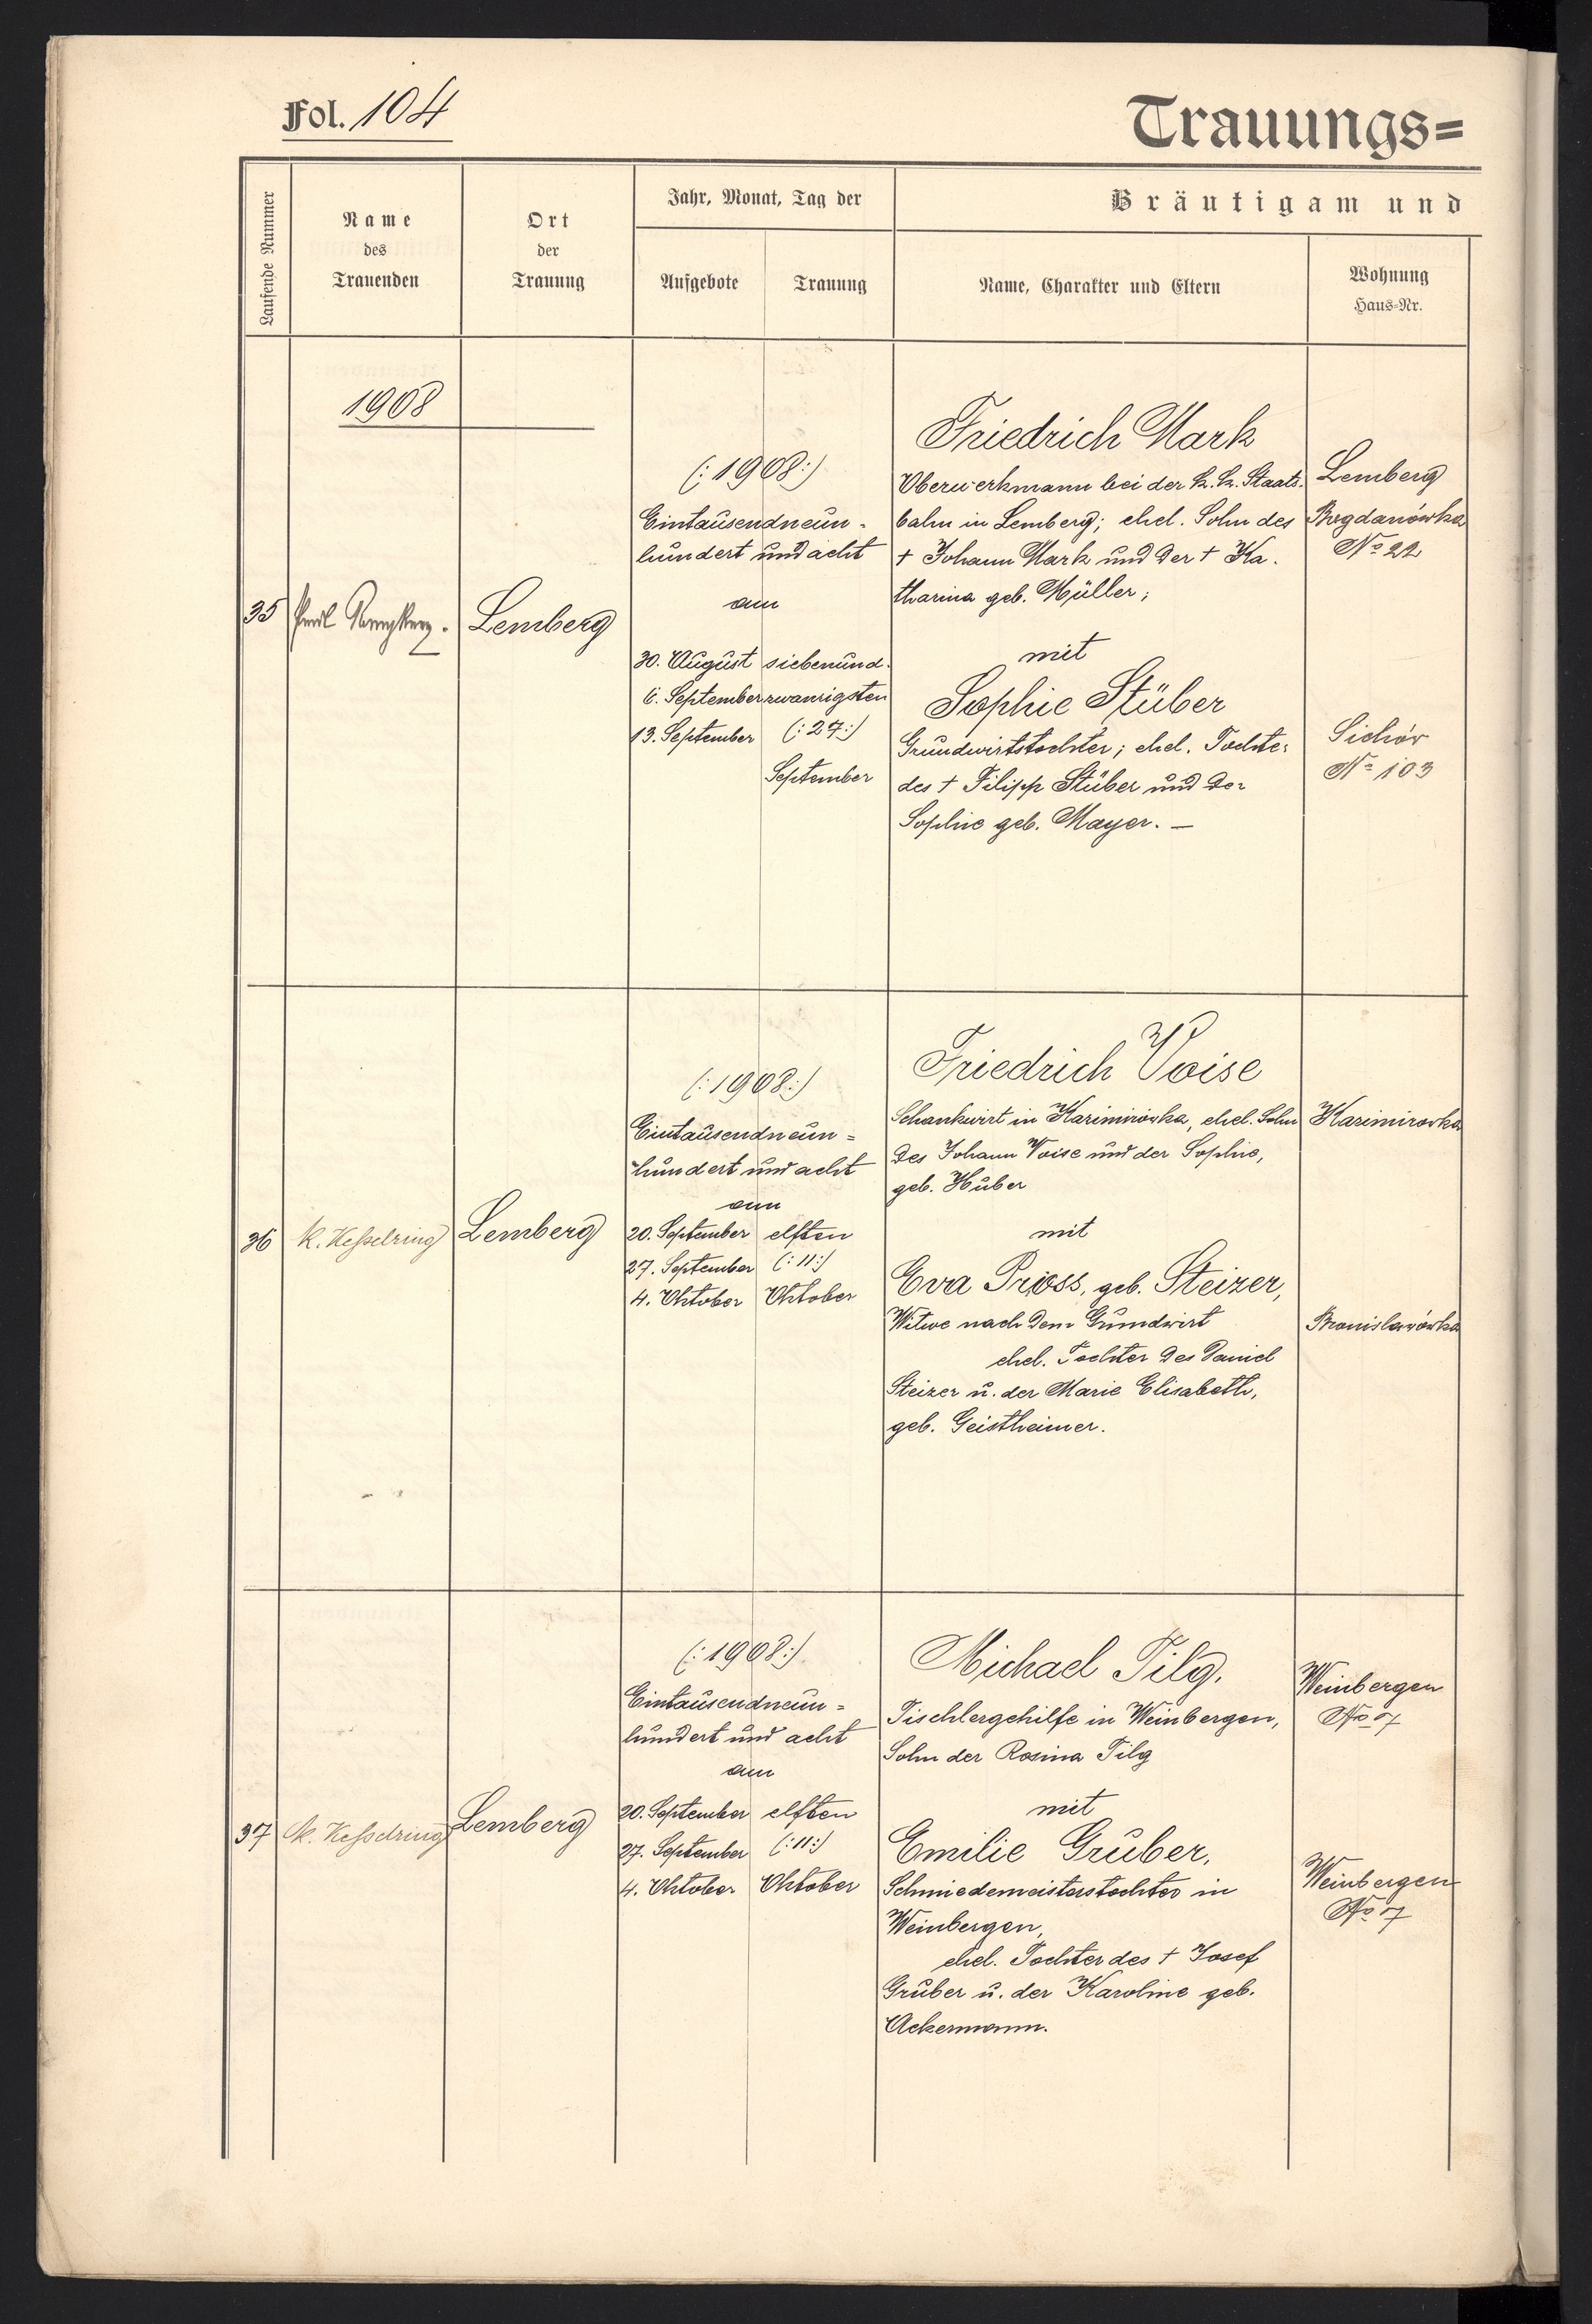 Fol. 104
Trauungs=
Laufende Nummer
Name
des
Trauenden
Ort
der
Trauung
Jahr, Monat, Tag der
Aufgebote
Trauung
Bräutigam und
Name, Charakter und Eltern
Wohnung
Haus=Nr.
1908
35
Lemberg
(: 1908 :)
Eintausendneun-
hundert und acht
am
30. August
6. September
13. September
siebenund-
zwanzigsten
(: 27 :)
September
Friedrich Mark
Oberwerkmann bei der k. k. Staats-
bahn in Lemberg; ehel. Sohn des
† Johann Mark und der † Ka-
tharina geb. Müller;
mit
Sophie Stüber
Grundwirtstochter; ehel. Tochter
des † Filipp Stüber und der
Sophie geb. Mayer. —
Lemberg
Bogdanówka
No 22
Sichów
No 103
36
K. Kesselring
Lemberg
(: 1908 :)
Eintausendneun=
hundert und acht
am
20. September
27. September
4. Oktober
elften
(: 11 :)
Oktober
Friedrich Voise
Schankwirt in Kazimirówka, ehel. Sohn
des Johann Voise und der Sophie,
geb. Huber
mit
Eva Pross, geb. Steizer,
Witwe nach dem Grundwirt
ehel. Tochter des Daniel
Steizer u. der Marie Elisabeth,
geb. Geistheimer.
Kazimirowka
Bronislawówka
37
K. Kesselring
Lemberg
(: 1908 :)
Eintausendneun=
hundert und acht
am
20. September
27. September
4. Oktober
elften
(: 11 :)
Oktober
Michael Tilg,
Tischlergehilfe in Weinbergen,
Sohn der Rosina Tilg
mit
Emilie Gruber,
Schmiedemeisterstochter in
Weinbergen,
ehel. Tochter des † Josef
Gruber u. der Karoline geb.
Ackermann.
Weinbergen
No 7
Weinbergen
No 7